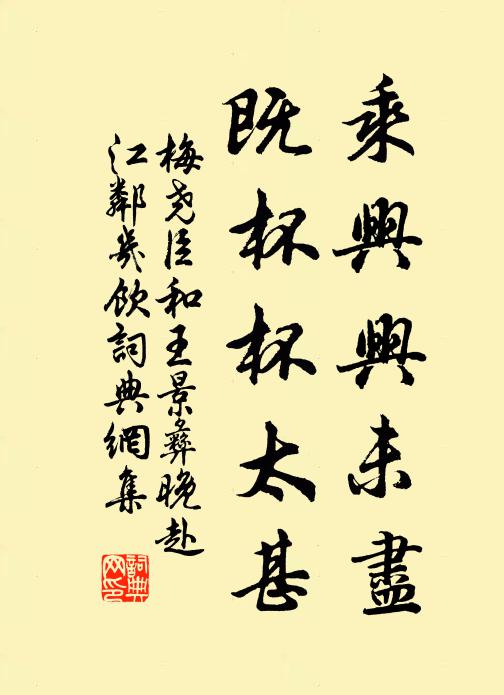 乘興興未盡
既杯杯太甚
梅尧臣和王景彝晚赴
江鄰幾飲詞典網集
詞典
网印